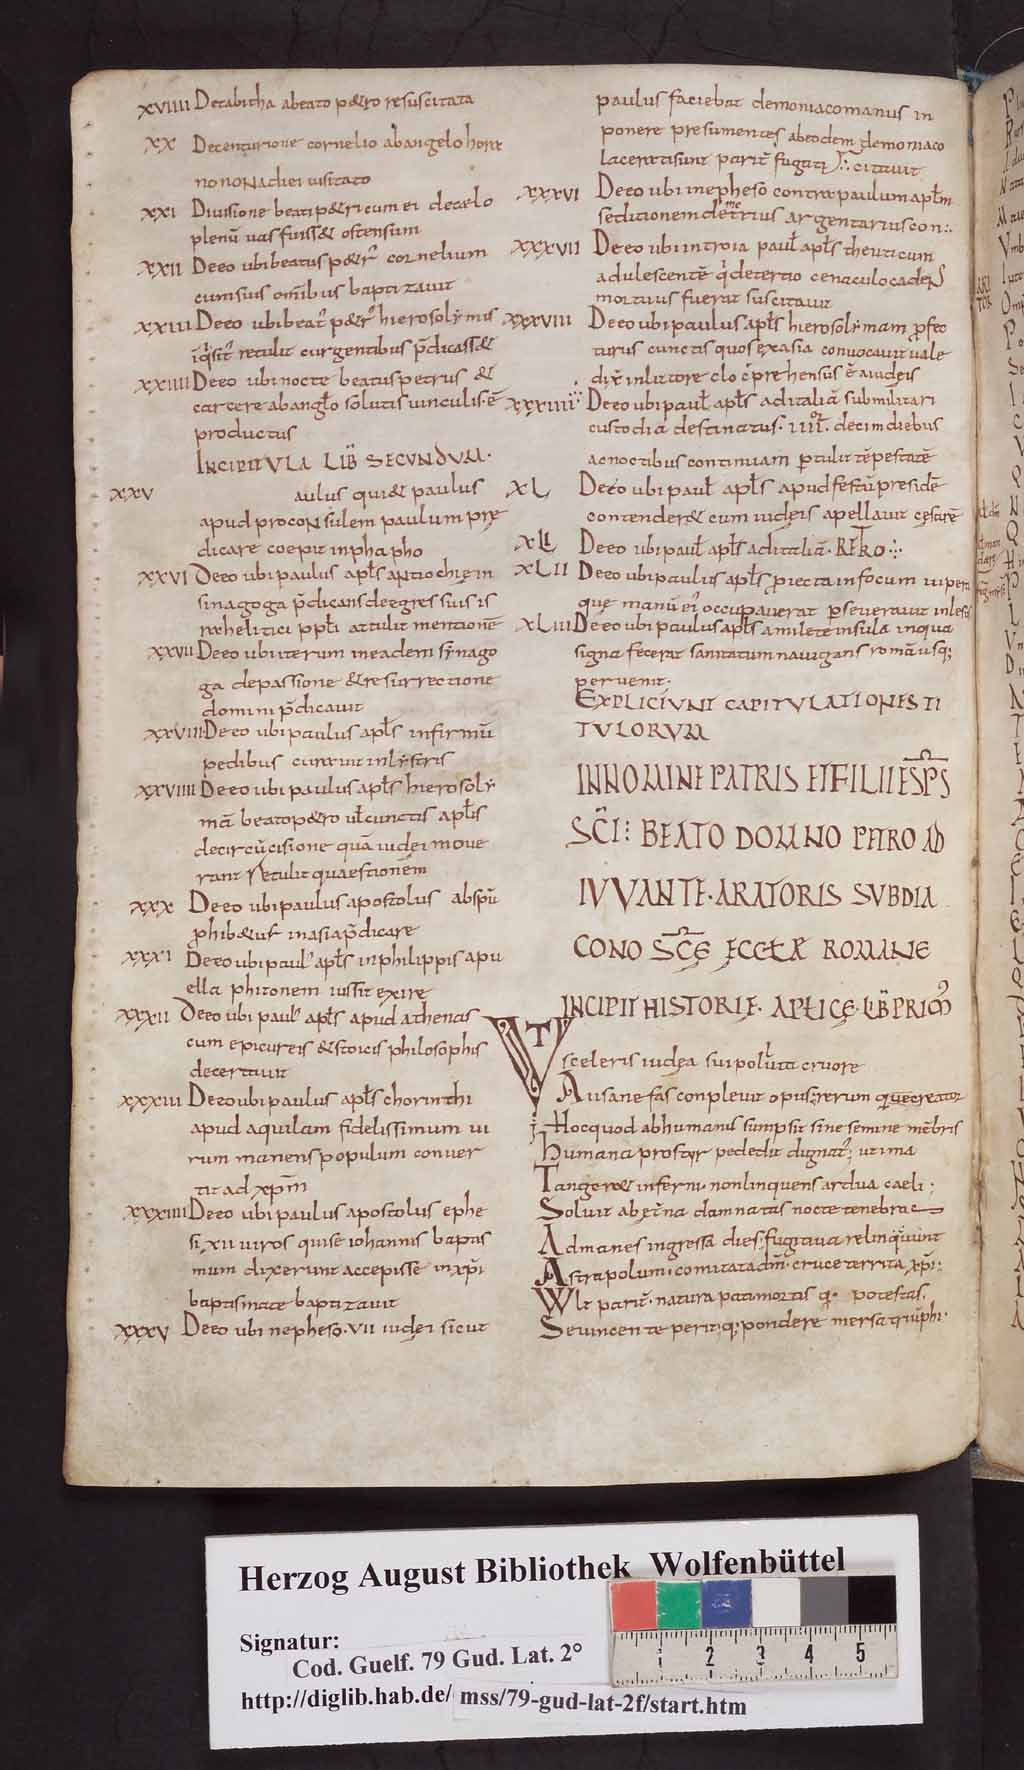 XVIIII De tabitha abeato p&ro resuscitata
XX De centurione cornelio abangelo hora
no nona diei uisitato
XXI Diuisione beati p&ri cum ei decelo
plenū uas fuiss& ostensum
XXII De eo ubi beatus p&rꝰ cornelium
cum suis omībus baptizauit
XXIII De eo ubi beatꝰ p&rꝰ hierosolymis
retulit curgentibus p̄dicass&
XXIIII De eo ubi nocte beatus petrus &
carcere abanglo solutis uinculis ē
productus
INCIPIT VLA LIB̄ SECVNDVM·
XXV aulus qui& paulus
apud proconsulem paulum prę
dicare coepit inphapho
XXVI De eo ubi paulus apłs antiochię in
sinagoga p̄dicans deegressuis is
rahelitici ppłi attulit mentionē
XXVII De eo ubi iterum in eadem synago
ga depassione &resurrectione
domini p̄dicauit
XXVIII De eo ubi paulus apłs infirmū
pedibus curauit in lystris
XXVIIII De eo ubi paulus apłs hierosoly
mā beato p&ro uł cunctis apłis
decircūcisione quā iudei moue
rant retulit quaestionem
XXX De eo ubi paulus apostolus abspū
phib&ur inasia p̄dicare
XXXI De eo ubi paulꝰ apłs inphilippis apu
ella phitonem iussit exire
XXXII De eo ubi paulꝰ apłs apud athenas
cum epicureis &stoicis philosophis
decertauit
XXXIII De eo ubi paulus apłs chorinthi
apud aquilam fidelissimum ui
rum manens populum conuer
tit ad xp̄m
XXXIIII De eo ubi paulus apostolus ephe
si XII uiros qui se iohannis baptis
mum dixerunt accepisse inxp̄i
baptismate baptizauit
XXXV De eo ubi nepheso·VII iudei sicut
paulus faciebat demoniaco manus in
ponere presumentes abeodem demoniaco
lacerati sunt parit̄ fugati
XXXVI De eo ubi inephesō contra paulum apłm
seditionem demetrius argentarius con
XXXVII De eo ubi introia pauł apłs euticum
adulescentē q̇ detertio cenaculo cadens
mortuus fuerat suscitauit
XXXVIII De eo ubi paulus apłs hierosolymam ꝓfec
turus cunctis quos exasia conuocauit uale
dix̄ inlittore prehensus ē aiudeis
XXXVIIII De eo ubi pauł apłs aditaliā submilitari
custodia destinatus· IIII· decim diebus
ac noctibus continuam ꝑtulit tēpestatē
XL De eo ubi pauł apłs apud festū presidē
contender& cum iudeis apellauit cęsarē
XLI De eo ubi pauł apłs aditaliā· RETRO
XLII De eo ubi paulus apłs proiecta infocum uipera
que manū eiꝰ occupauerat ꝑseuerauit inlesus
XLIII De eo ubi paulus apłs amilete insula inqua
signa fecerat sanitatum nauigans romā usq;
peruenit·
EXPLICIVNT CAPITVLATIONES TI
TVLORVM
IN NOMINE PATRIS ET FILII ET SP̄S
SC̄I: BEATO DOMNO PETRO AD
IVVANTE· ARATORIS SVBDIA
CONO SC̄Ę ECCLĘ ROMANE
INCIPIT HISTORIĘ· APŁICE· LIB̄ PRIM̄
VT
sceleris iudęa sui polluta cruore
Ausa nefas conpleuit opus rerum q; creator
Hoc quod ab humanis sumpsit sine semine mēbris
Humana pro stirpe dedit dignatꝰ; ut ima
Tanger& inferni· non linquens ardua caeli;
Soluit ab ęterna damnatas nocte tenebras
Ad manes ingressa dies: fugitiua relinquunt
Astra polum· comitata dm̄· cruce territa xp̄i:
Vult parit̄· natura pati· mortis q; potestas·
Se uincente perit; q; pondere mersa triūphi·
Herzog August Bibliothek Wolfenbüttel
Signatur:
Cod. Guelf. 79 Gud. Lat. 2°
http://diglib.hab.de/ mss/79-gud-lat-2f/start.htm
1 2 3 4 5